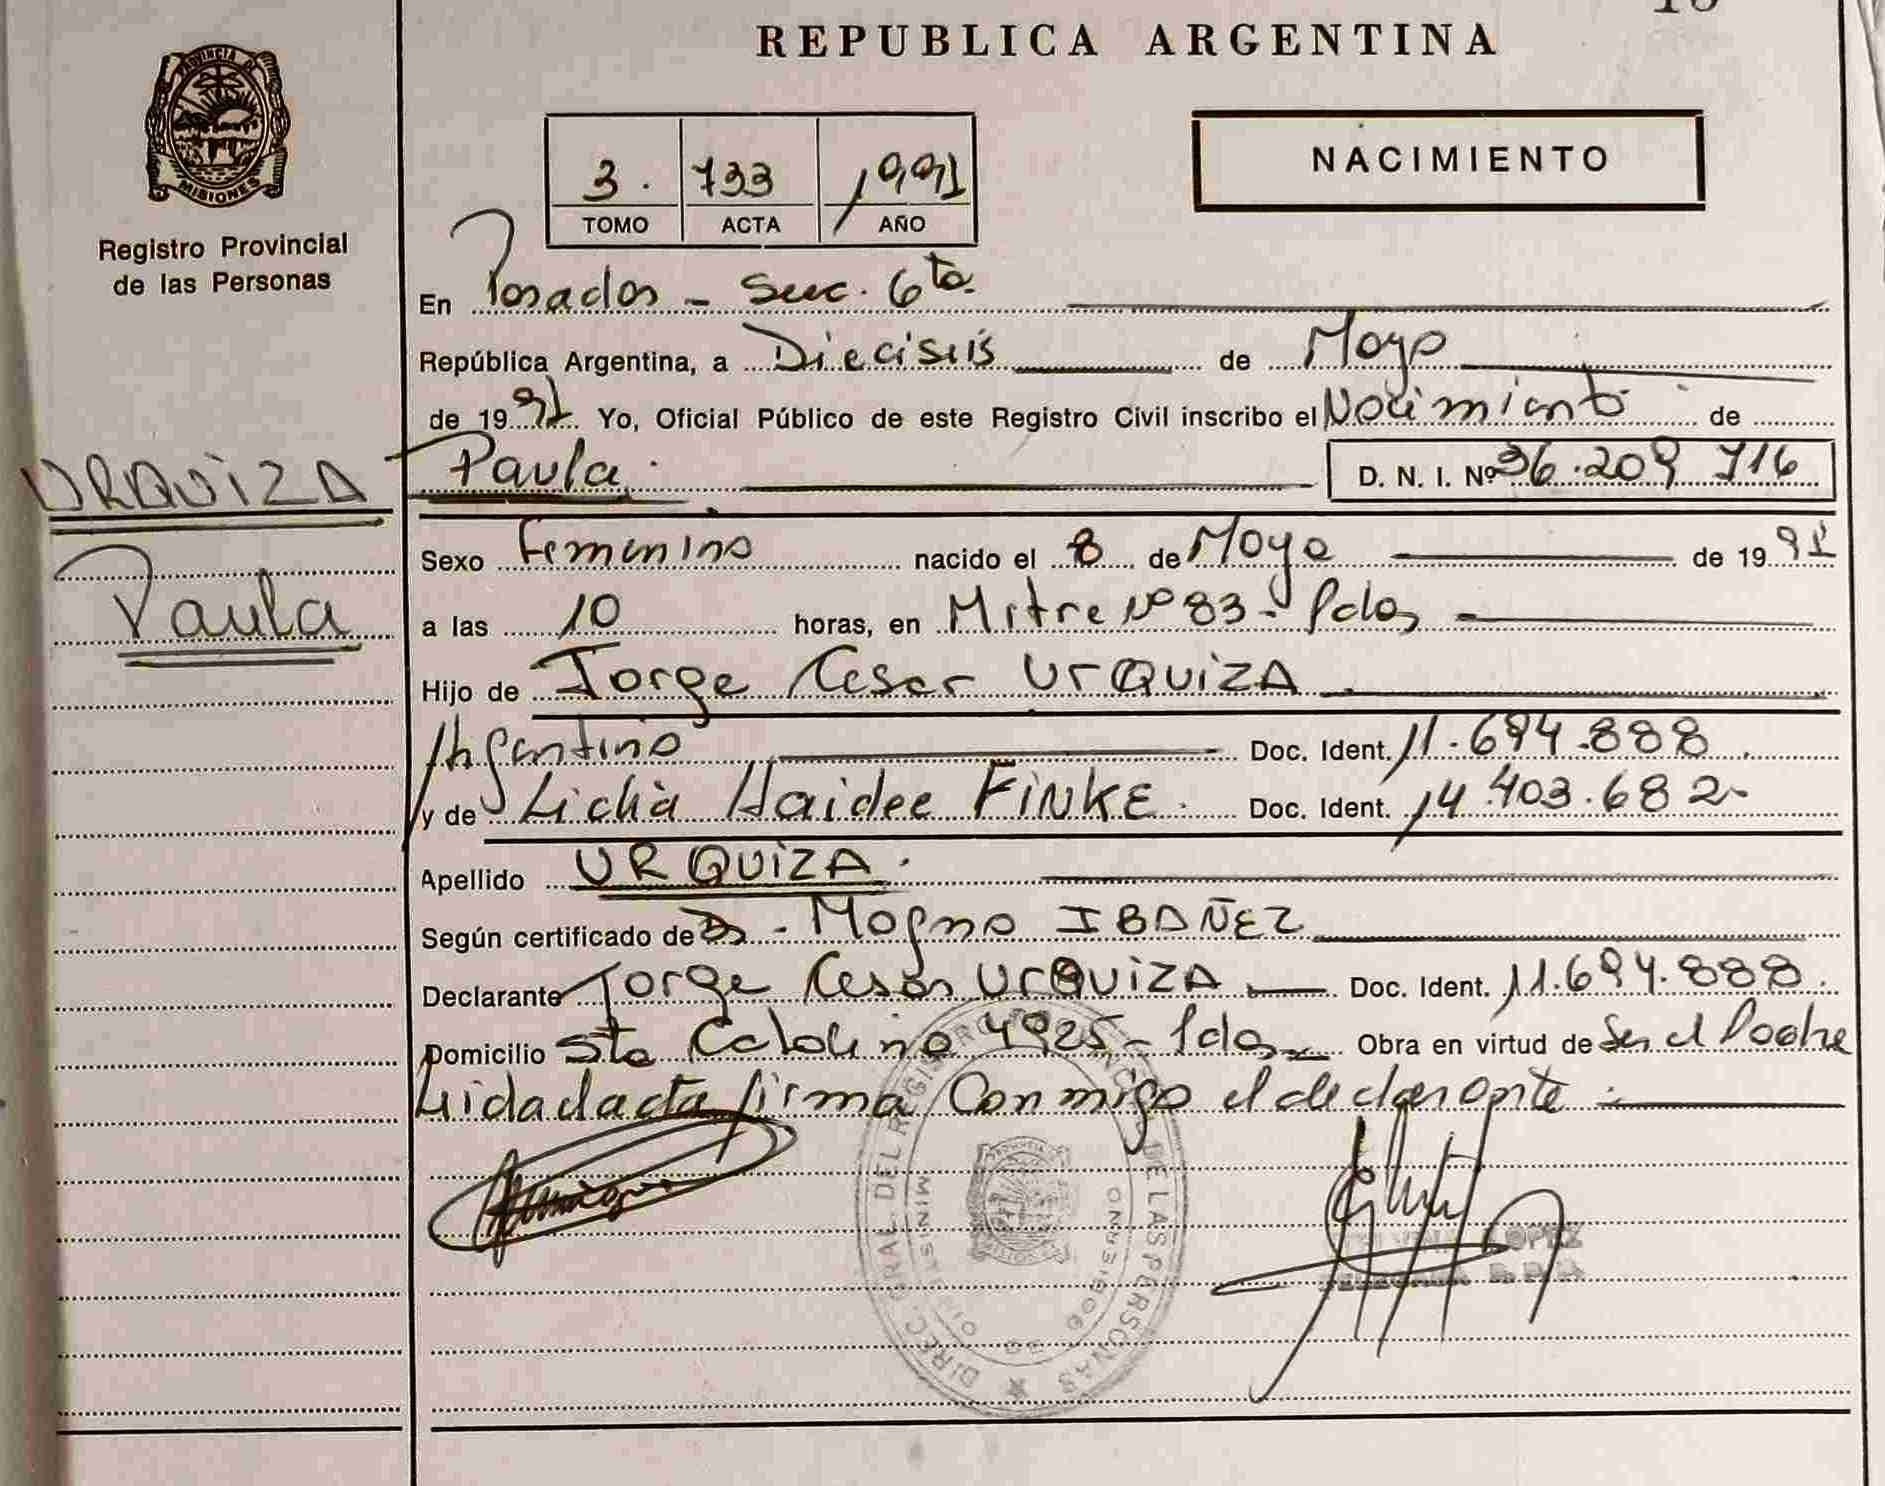 REPUBLICA ARGENTINA
PROVINCIA DE
MISIONES
Registro Provincial
de las Personas
NACIMIENTO
3. 733 1991
TOMO ACTA AÑO
En Posadas - Secc. 6ta.
República Argentina, a Dieciséis de Mayo
de 1991 Yo, Oficial Público de este Registro Civil inscribo el Nacimiento de
URQUIZA
Paula
Paula. D. N. I. Nº 36.209 716
Sexo Femenino nacido el 8 de Mayo de 1991
a las 10 horas, en Mitre Nº 83 - Pdas
Hijo de Jorge Cesar UrQUiZA
Argentino Doc. Ident. 11.694.888
y de Licha Haidee FiNKE. Doc. Ident. 14.403.682-
Apellido URQUiZA.
Según certificado de Dr - Magno IBAÑEZ
Declarante Jorge Cesar UrQUiZA Doc. Ident. 11.694.888.
Domicilio Sta Catalina 4925 - Pdas Obra en virtud de Ser el Padre
Leida el acta firma Conmigo el declarante
DIREC. GRAL. DEL REGISTRO PROVINCIAL DE LAS PERSONAS
MINISTERIO DE GOBIERNO
LOPEZ